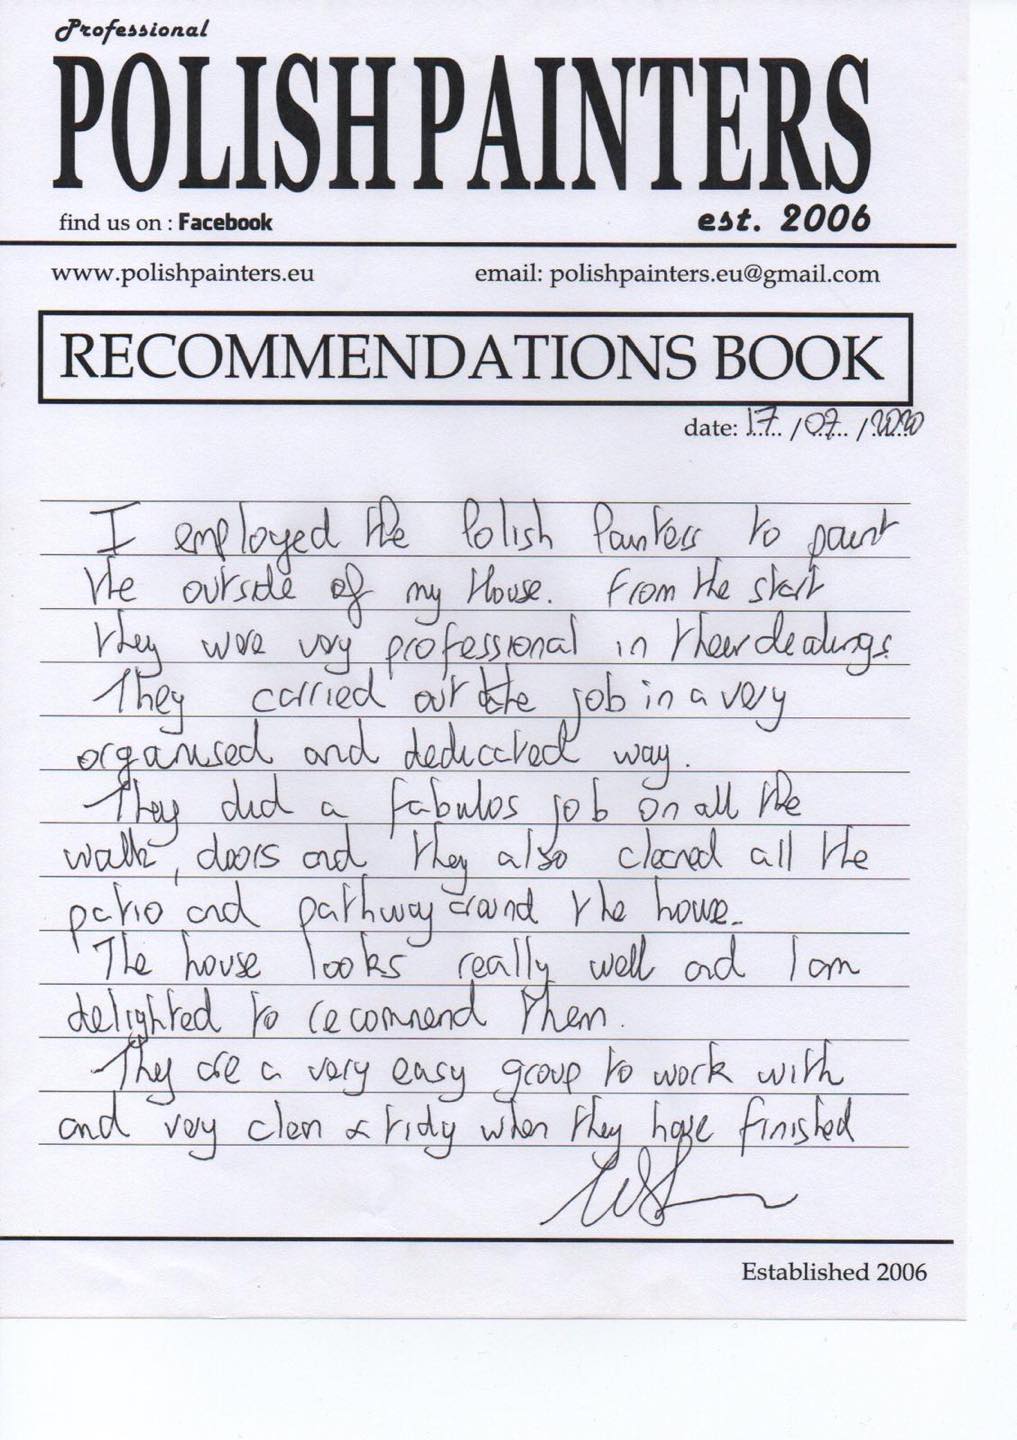 Professional
POLISH PAINTERS
find us on : Facebook
est. 2006
www.polishpainters.eu
email: polishpainters.eu@gmail.com
RECOMMENDATIONS BOOK
date: 17 / 07 / 2020
I employed the Polish Painters to paint
the outside of my House. From the start
they were very professional in their dealings.
They carried out the job in a very
organised and dedicated way.
They did a fabulos job on all the
walls, doors and they also cleaned all the
patio and pathway around the house.
The house looks really well and I am
delighted to recommend them.
They are a very easy group to work with
and very clean & tidy when they have finished
Established 2006